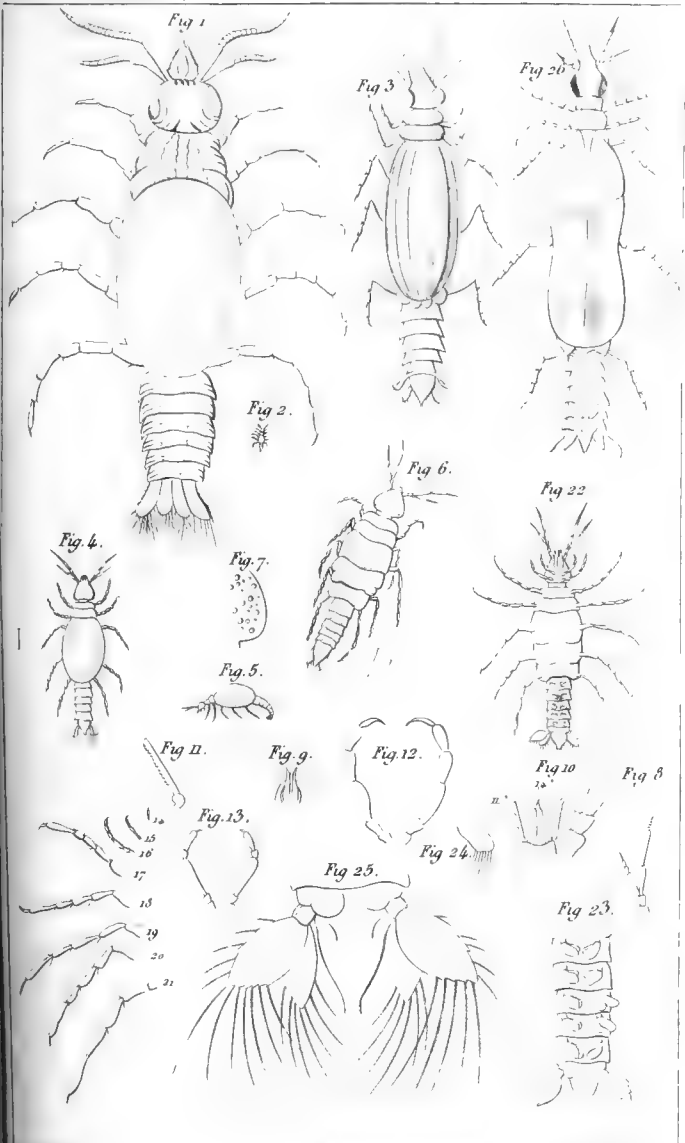 Fig 1
Fig 3
Fig 26
Fig 2.
Fig 6.
Fig 22
Fig. 4.
Fig. 7.
Fig. 5.
Fig 11.
Fig. 9.
Fig. 12.
Fig 10
Fig 8
14
15
16
17
Fig. 13.
11
14
Fig 24.
Fig 25.
18
19
20
21
Fig 23.